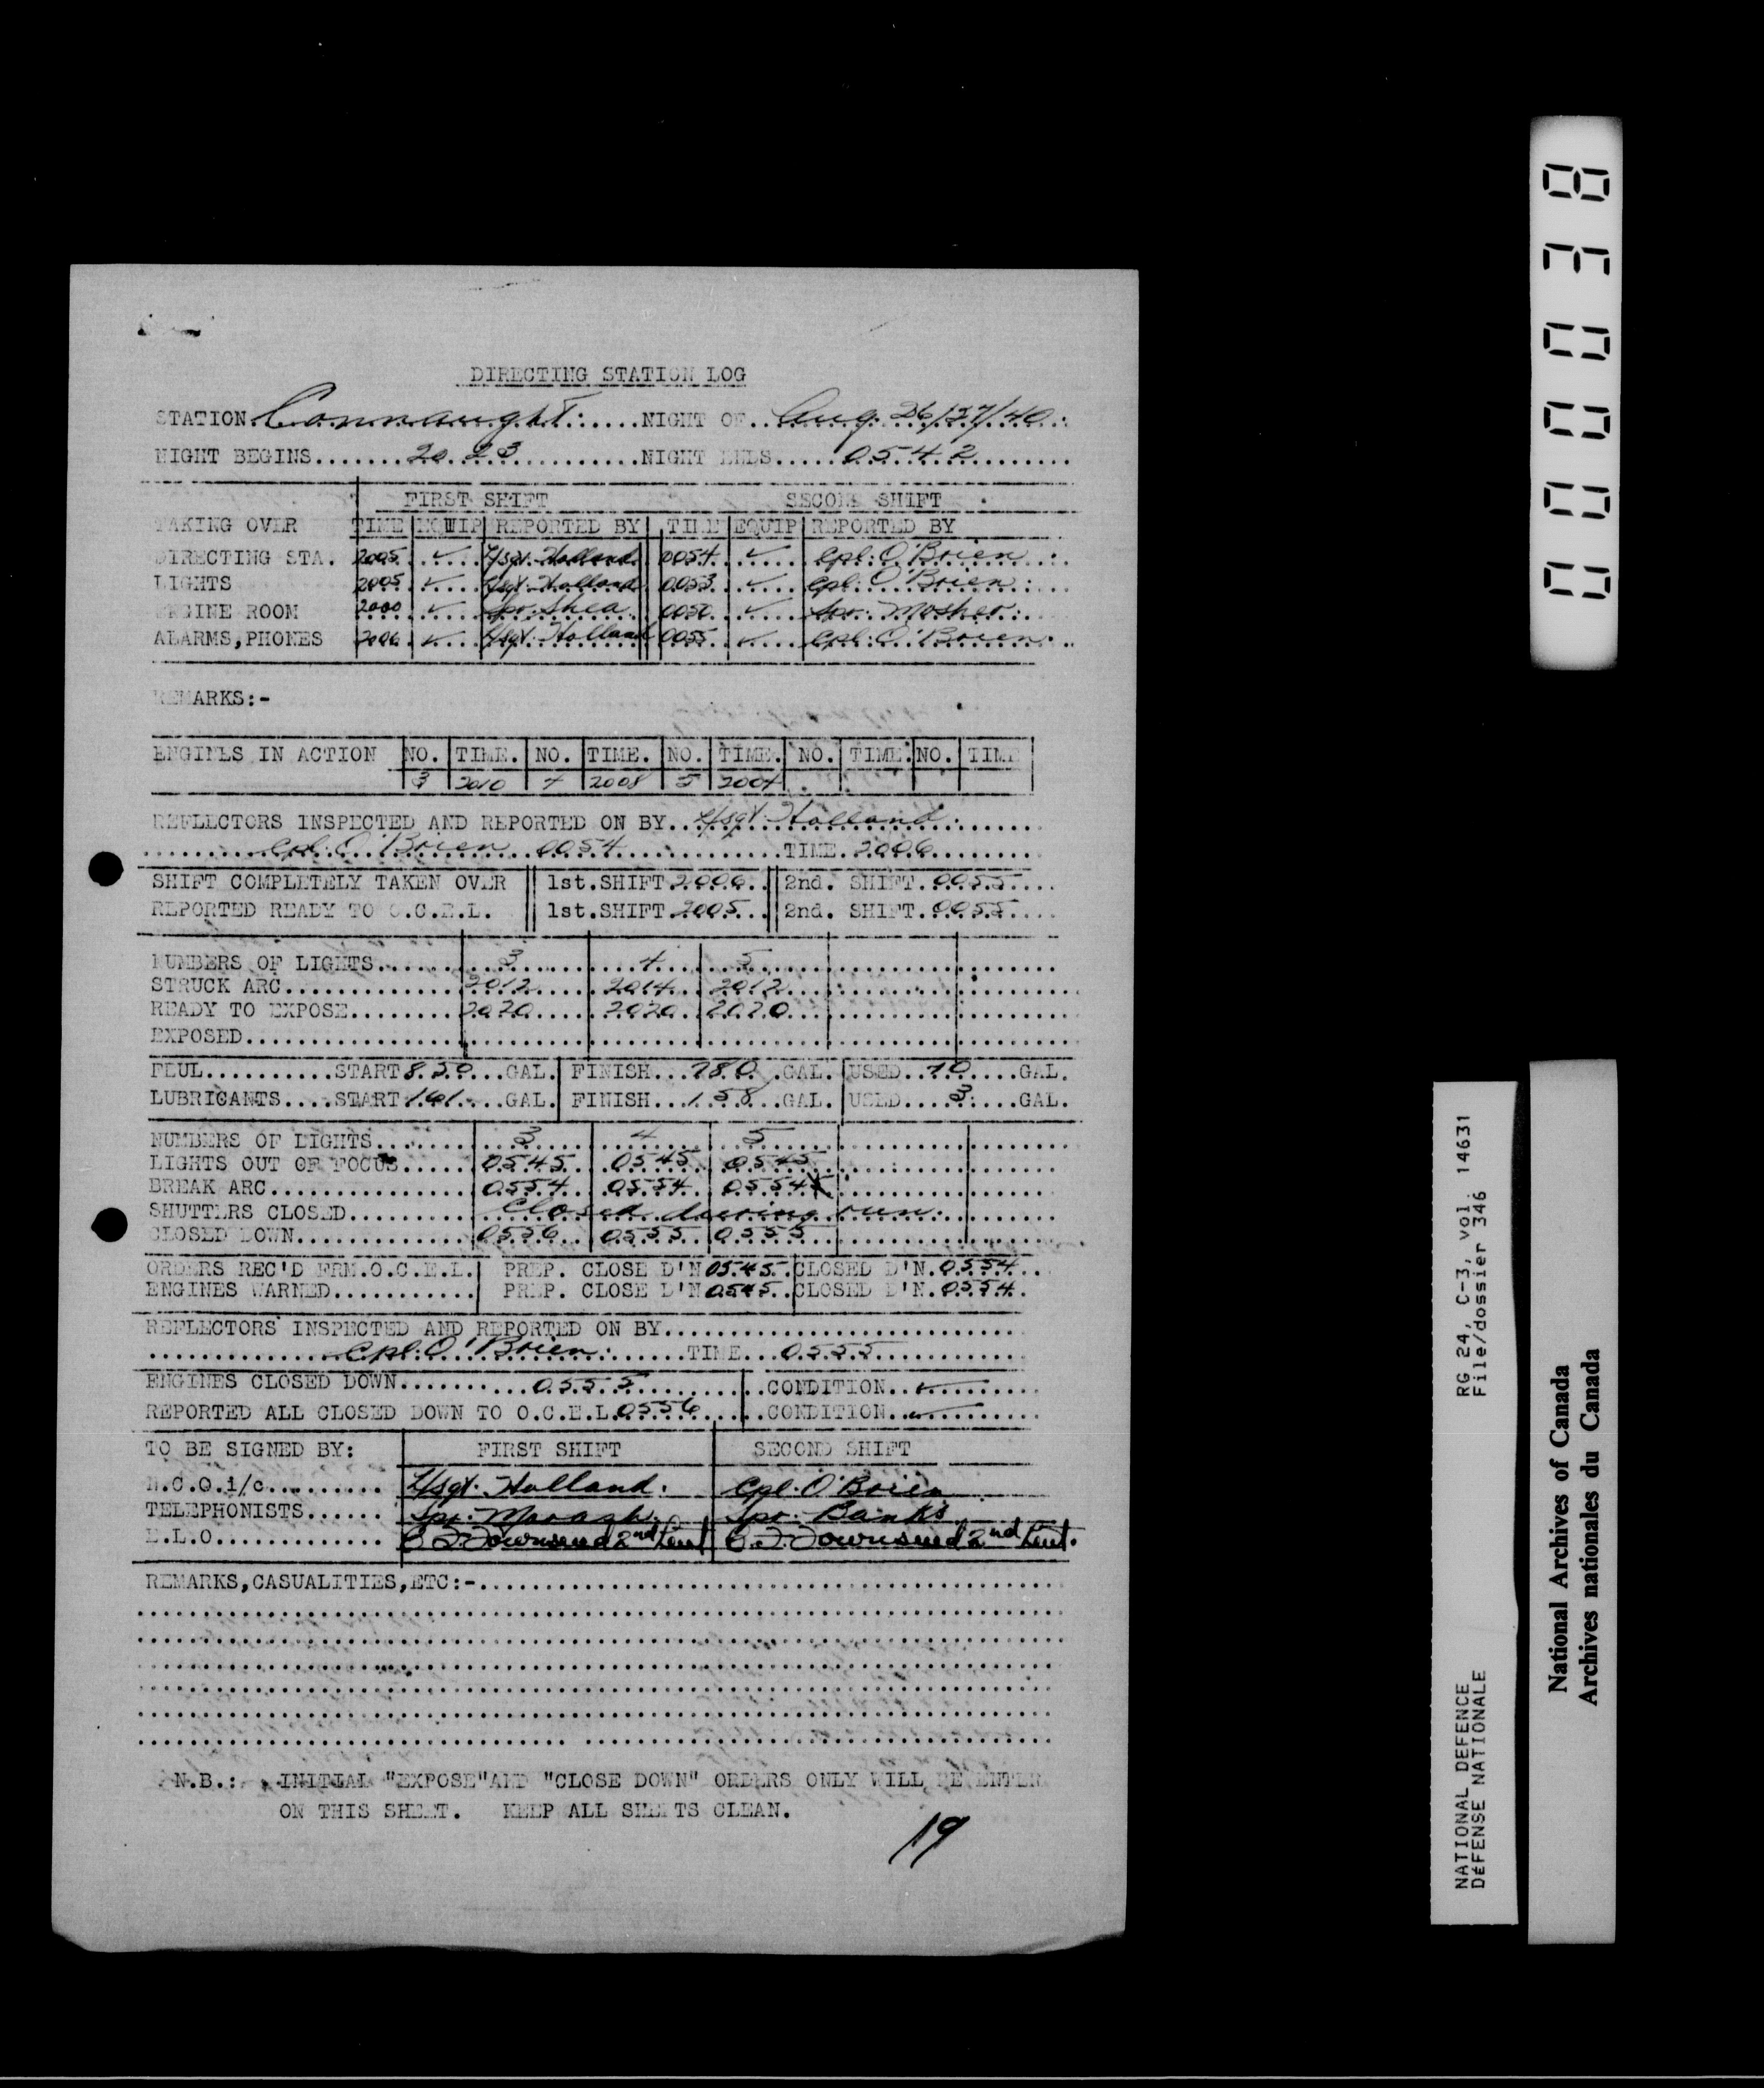 DIRECTING STATION LOG
STATION Connaught. NIGHT OF Aug. 26/27/40.
NIGHT BEGINS 20 23 NIGHT ENDS 0542
FIRST SHIFT SECOND SHIFT
TAKING OVER TIME EQUIP REPORTED BY TIME EQUIP REPORTED BY
DIRECTING STA. 2005 ✓ L/sgt. Holland 0054 ✓ Cpl. O'Brien
LIGHTS 2005 ✓ L/sgt. Holland 0053 ✓ Cpl. O'Brien
ENGINE ROOM 2000 ✓ Spr. Shea 0050 ✓ Spr. Mosher
ALARMS,PHONES 2006 ✓ L/sgt. Holland 0055 ✓ Cpl. O'Brien
REMARKS:-
ENGINES IN ACTION NO. TIME. NO. TIME. NO. TIME. NO. TIME. NO. TIME
3 2010 4 2008 5 2004
REFLECTORS INSPECTED AND REPORTED ON BY L/sgt. Holland.
Cpl. O'Brien 0054 TIME 2006
SHIFT COMPLETELY TAKEN OVER 1st.SHIFT 2006 2nd. SHIFT 0055
REPORTED READY TO O.C.E.L. 1st.SHIFT 2005 2nd. SHIFT 0055
NUMBERS OF LIGHTS 3 4 5
STRUCK ARC 2012 2014 2012
READY TO EXPOSE 2020 2020 2020
EXPOSED
FEUL START 850 GAL. FINISH 780 GAL. USED 70 GAL.
LUBRICANTS START 161 GAL. FINISH 158 GAL. USED 3 GAL.
NUMBERS OF LIGHTS 3 4 5
LIGHTS OUT OF FOCUS 0545 0545 0545
BREAK ARC 0554 0554 0554
SHUTTERS CLOSED Closed during run.
CLOSED DOWN 0556 0555 0555
ORDERS REC'D FRM.O.C.E.L. PREP. CLOSE D'N 0545 CLOSED D'N. 0554
ENGINES WARNED PREP. CLOSE D'N 0545 CLOSED D'N. 0554
REFLECTORS INSPECTED AND REPORTED ON BY
Cpl. O'Brien. TIME 0555
ENGINES CLOSED DOWN 0555 CONDITION ✓
REPORTED ALL CLOSED DOWN TO O.C.E.L. 0556 CONDITION ✓
TO BE SIGNED BY: FIRST SHIFT SECOND SHIFT
N.C.O.i/c L/sgt. Holland. Cpl. O'Brien
TELEPHONISTS Spr. Spr. Banks
E.L.O. Townsend 2nd Lieut Townsend 2nd Lieut.
REMARKS,CASUALITIES,ETC:-
N.B.: INITIAL "EXPOSE"AND "CLOSE DOWN" ORDERS ONLY WILL BE ENTER
ON THIS SHEET. KEEP ALL SHEETS CLEAN.
19
000038
RG 24, C-3, vol. 14631
File/dossier 346
NATIONAL DEFENCE
DÉFENSE NATIONALE
National Archives of Canada
Archives nationales du Canada